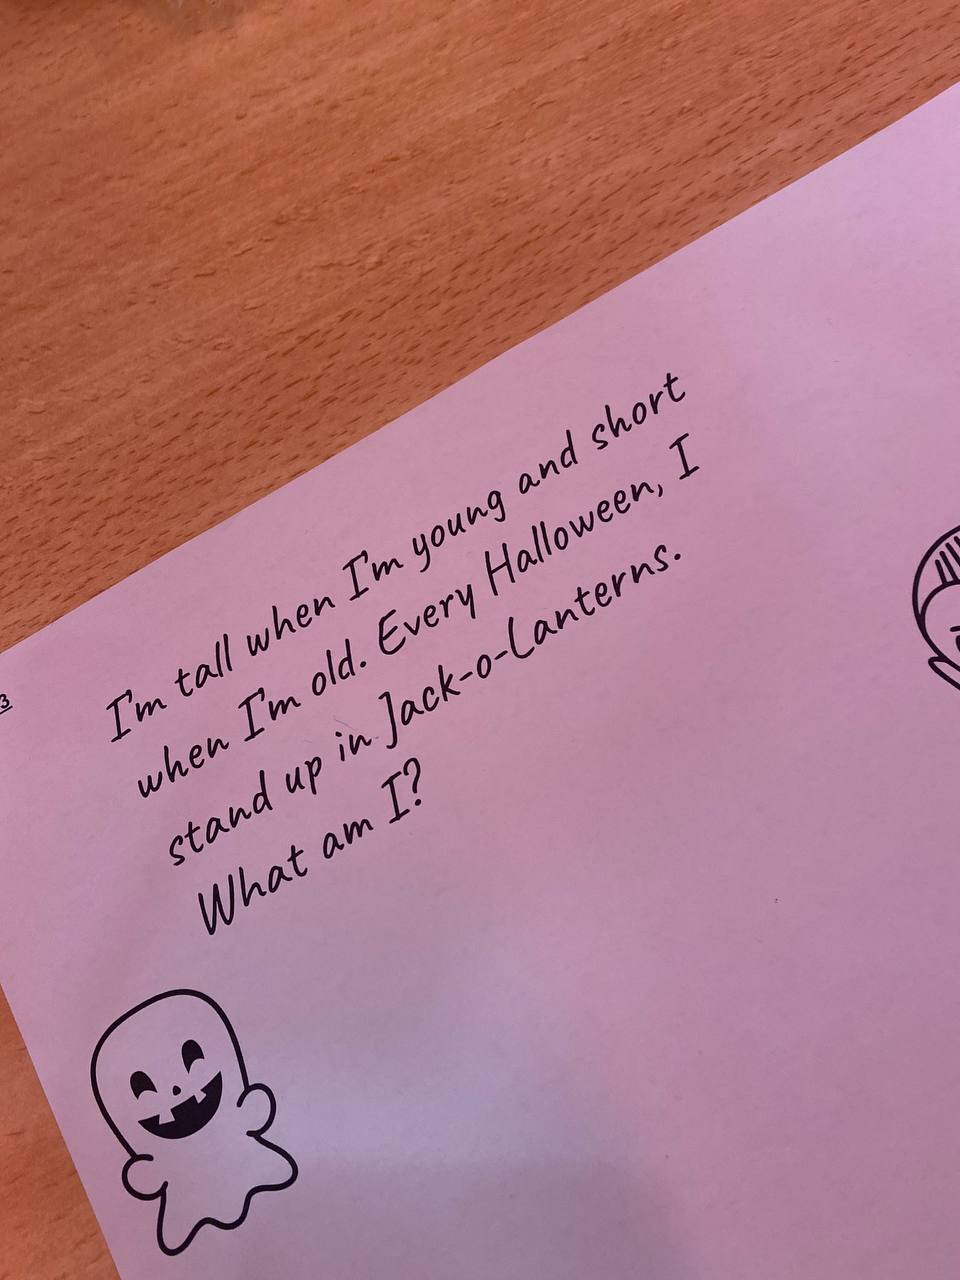 3
I'm tall when I'm young and short
when I'm old. Every Halloween, I
stand up in Jack-o-Lanterns.
What am I?